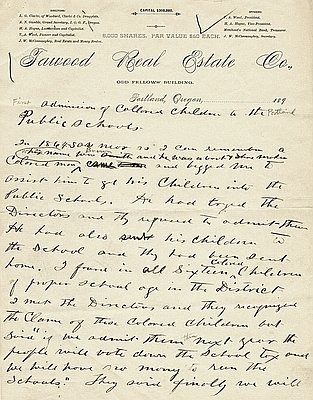 DIRECTORS
CAPITAL $300,000.
OFFICERS
L. G. Clarke, of Woodard, Clarke & Co. Druggists.
T. A. Wood, President.
H. A. Hogue, Vice-President.
T. A. Wood, Pioneer and Capitalist.
Merchant's National Bank, Treasurer.
J. W. McConnaughey, Real Estate and Money Broker.
J. W. McConnaughey, Secretary.
6,000 SHARES. PAR VALUE $50 EACH.
Tawood Real Estate Co.
ODD FELLOWS' BUILDING.
Portland, Oregon, 189
First admission of Colored Children to the Portland
Public Schools.
In 1867 or near as I can remember a
his name was Brown and he was about
Colored man came and begged me to
assist him to get his Children into the
Public Schools. He had urged the
Directors and they refused to admit them
He had also sent his Children to
the School and they had been sent
home. I found in all Sixteen Colored Children
of proper School age in the District
I met the Directors and they recognized
the Claim of these Colored Children but
Said "if we admit them next year the
people will vote down the School tax and
we will have no money to run the
Schools." They said finally we will